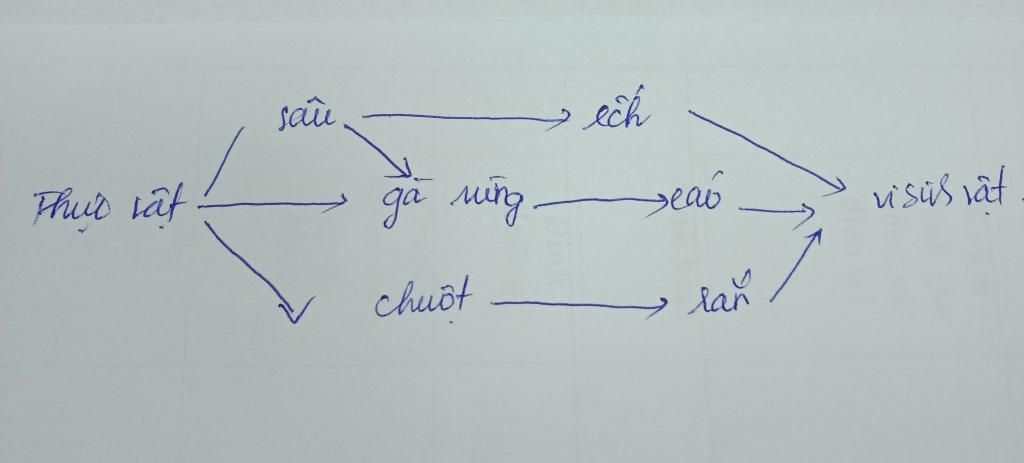 sâu ếch
Thực vật gà rừng cáo vi sinh vật.
chuột rắn